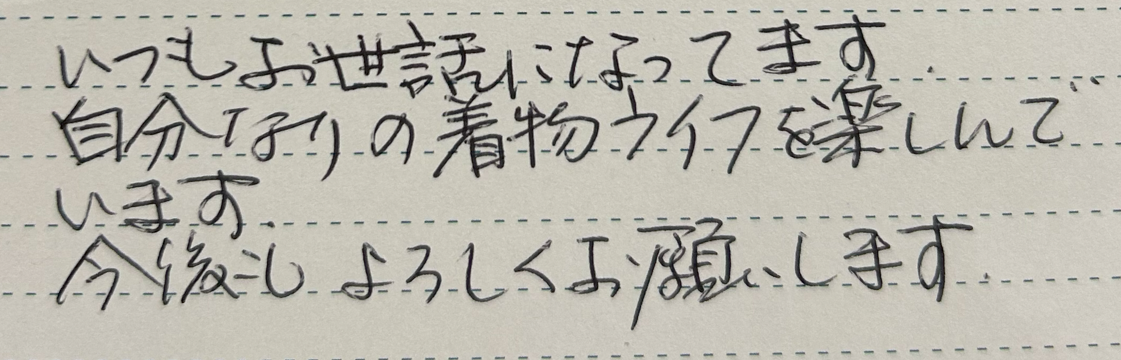 いつもお世話になってます.
自分なりの着物ライフを楽しんで
います.
今後もよろしくお願いします.